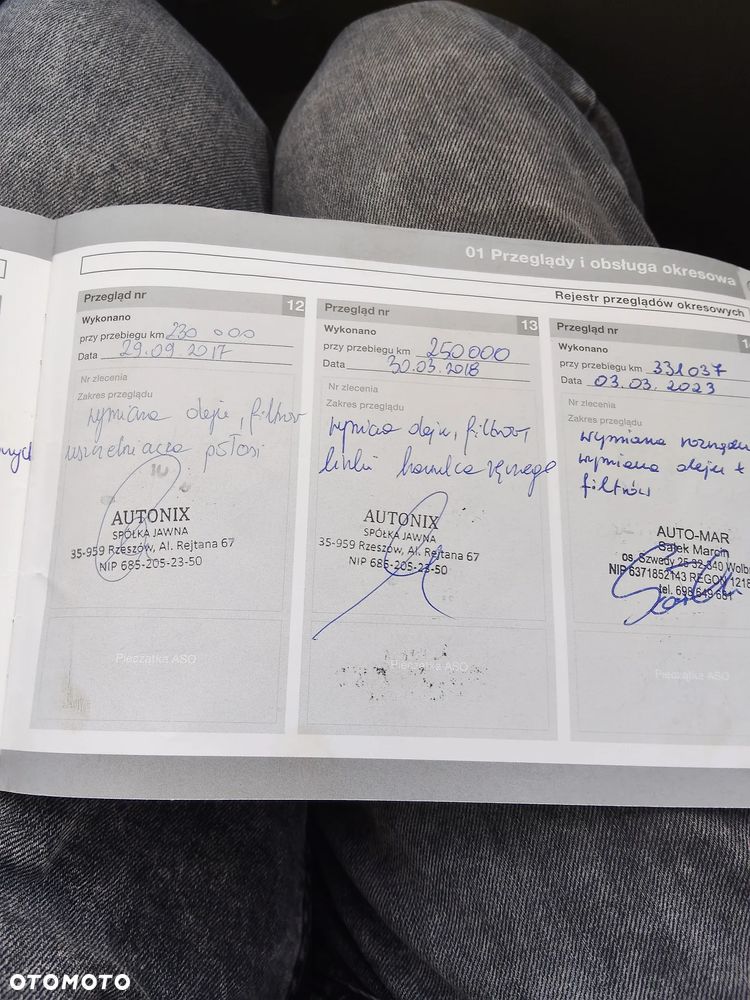 01 Przeglądy i obsługa okresowa
Rejestr przeglądów okresowych
Przegląd nr 12
Wykonano
przy przebiegu km 230 000
Data 29.09.2017
Nr zlecenia
Zakres przeglądu
wymiana oleju, filtrów
uszczelniacza półosi
AUTONIX
SPÓŁKA JAWNA
35-959 Rzeszów, Al. Rejtana 67
NIP 685-205-23-50
Pieczątka ASO
Przegląd nr 13
Wykonano
przy przebiegu km 250000
Data 30.03.2018
Nr zlecenia
Zakres przeglądu
wymiana oleju, filtrów,
linki hamulca ręcznego
AUTONIX
SPÓŁKA JAWNA
35-959 Rzeszów, Al. Rejtana 67
NIP 685-205-23-50
Pieczątka ASO
Przegląd nr
Wykonano
przy przebiegu km 331037
Data 03.03.2023
Nr zlecenia
Zakres przeglądu
wymiana rozrządu
wymiana oleju +
filtrów
AUTO-MAR
Sałek Marcin
os. Szwedy 25 32-340 Wolb
NIP 6371852143 REGON 1218
tel. 698 649 681
Pieczątka ASO
OTOMOTO